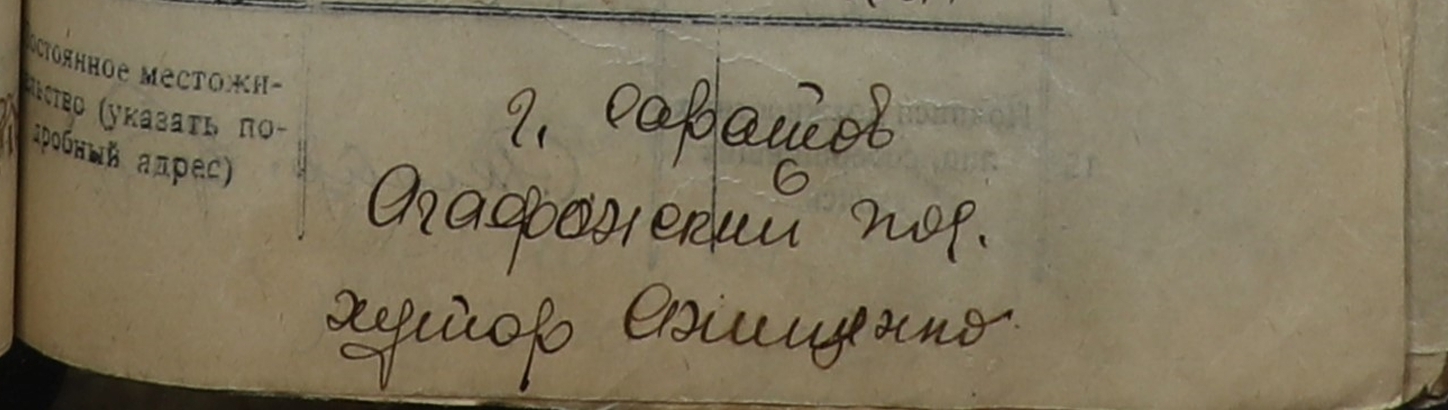 остоянное местожи-
льство (указать по-
дробный адрес)
г. Саратов
Агафоновский пос.
хутор Онищенко